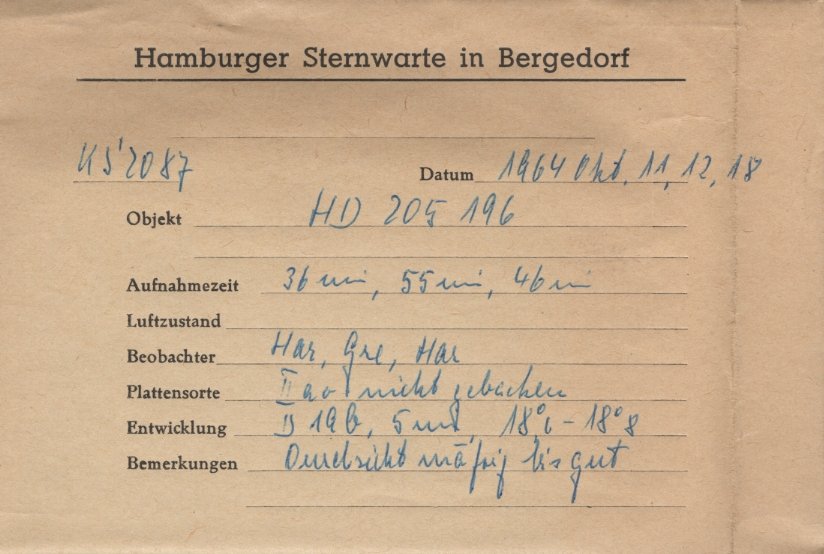 Hamburger Sternwarte in Bergedorf
KS'2087 Datum 1964 Okt. 11, 12, 18
Objekt HD 205 196
Aufnahmezeit 36 min, 55 min, 46 min
Luftzustand
Beobachter Har, Gre, Har
Plattensorte IIao nicht gebacken
Entwicklung D 19b, 5 min, 18°,6 - 18°8
Bemerkungen Durchsicht mäßig bis gut